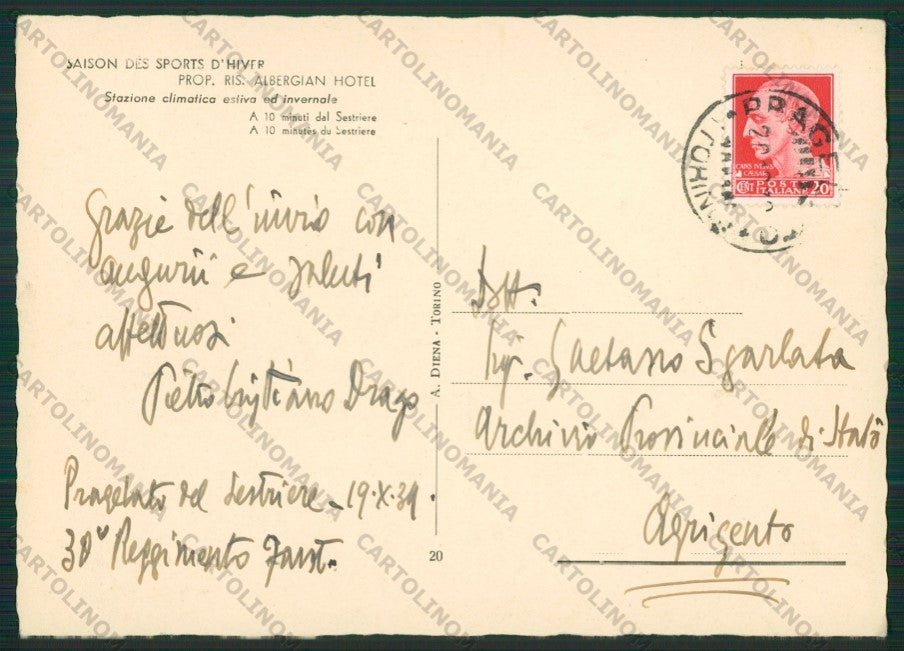 SAISON DES SPORTS D'HIVER
PROP. RIS. ALBERGIAN HOTEL
Stazione climatica estiva ed invernale
A 10 minuti dal Sestriere
A 10 minutes du Sestriere
Grazie dell'invio con
auguri e saluti
affettuosi
Pietro Cristiano Drago
Pragelato del Sestriere - 19.X.39.
30° Reggimento Fant.
A. DIENA - TORINO
20
PRAGEL
TORINO
POSTE
ITALIANE
CENT 20
Dott.
Gaetano Sgarlata
Archivio Provinciale di Stato
Agrigento
CARTOLINOMANIA